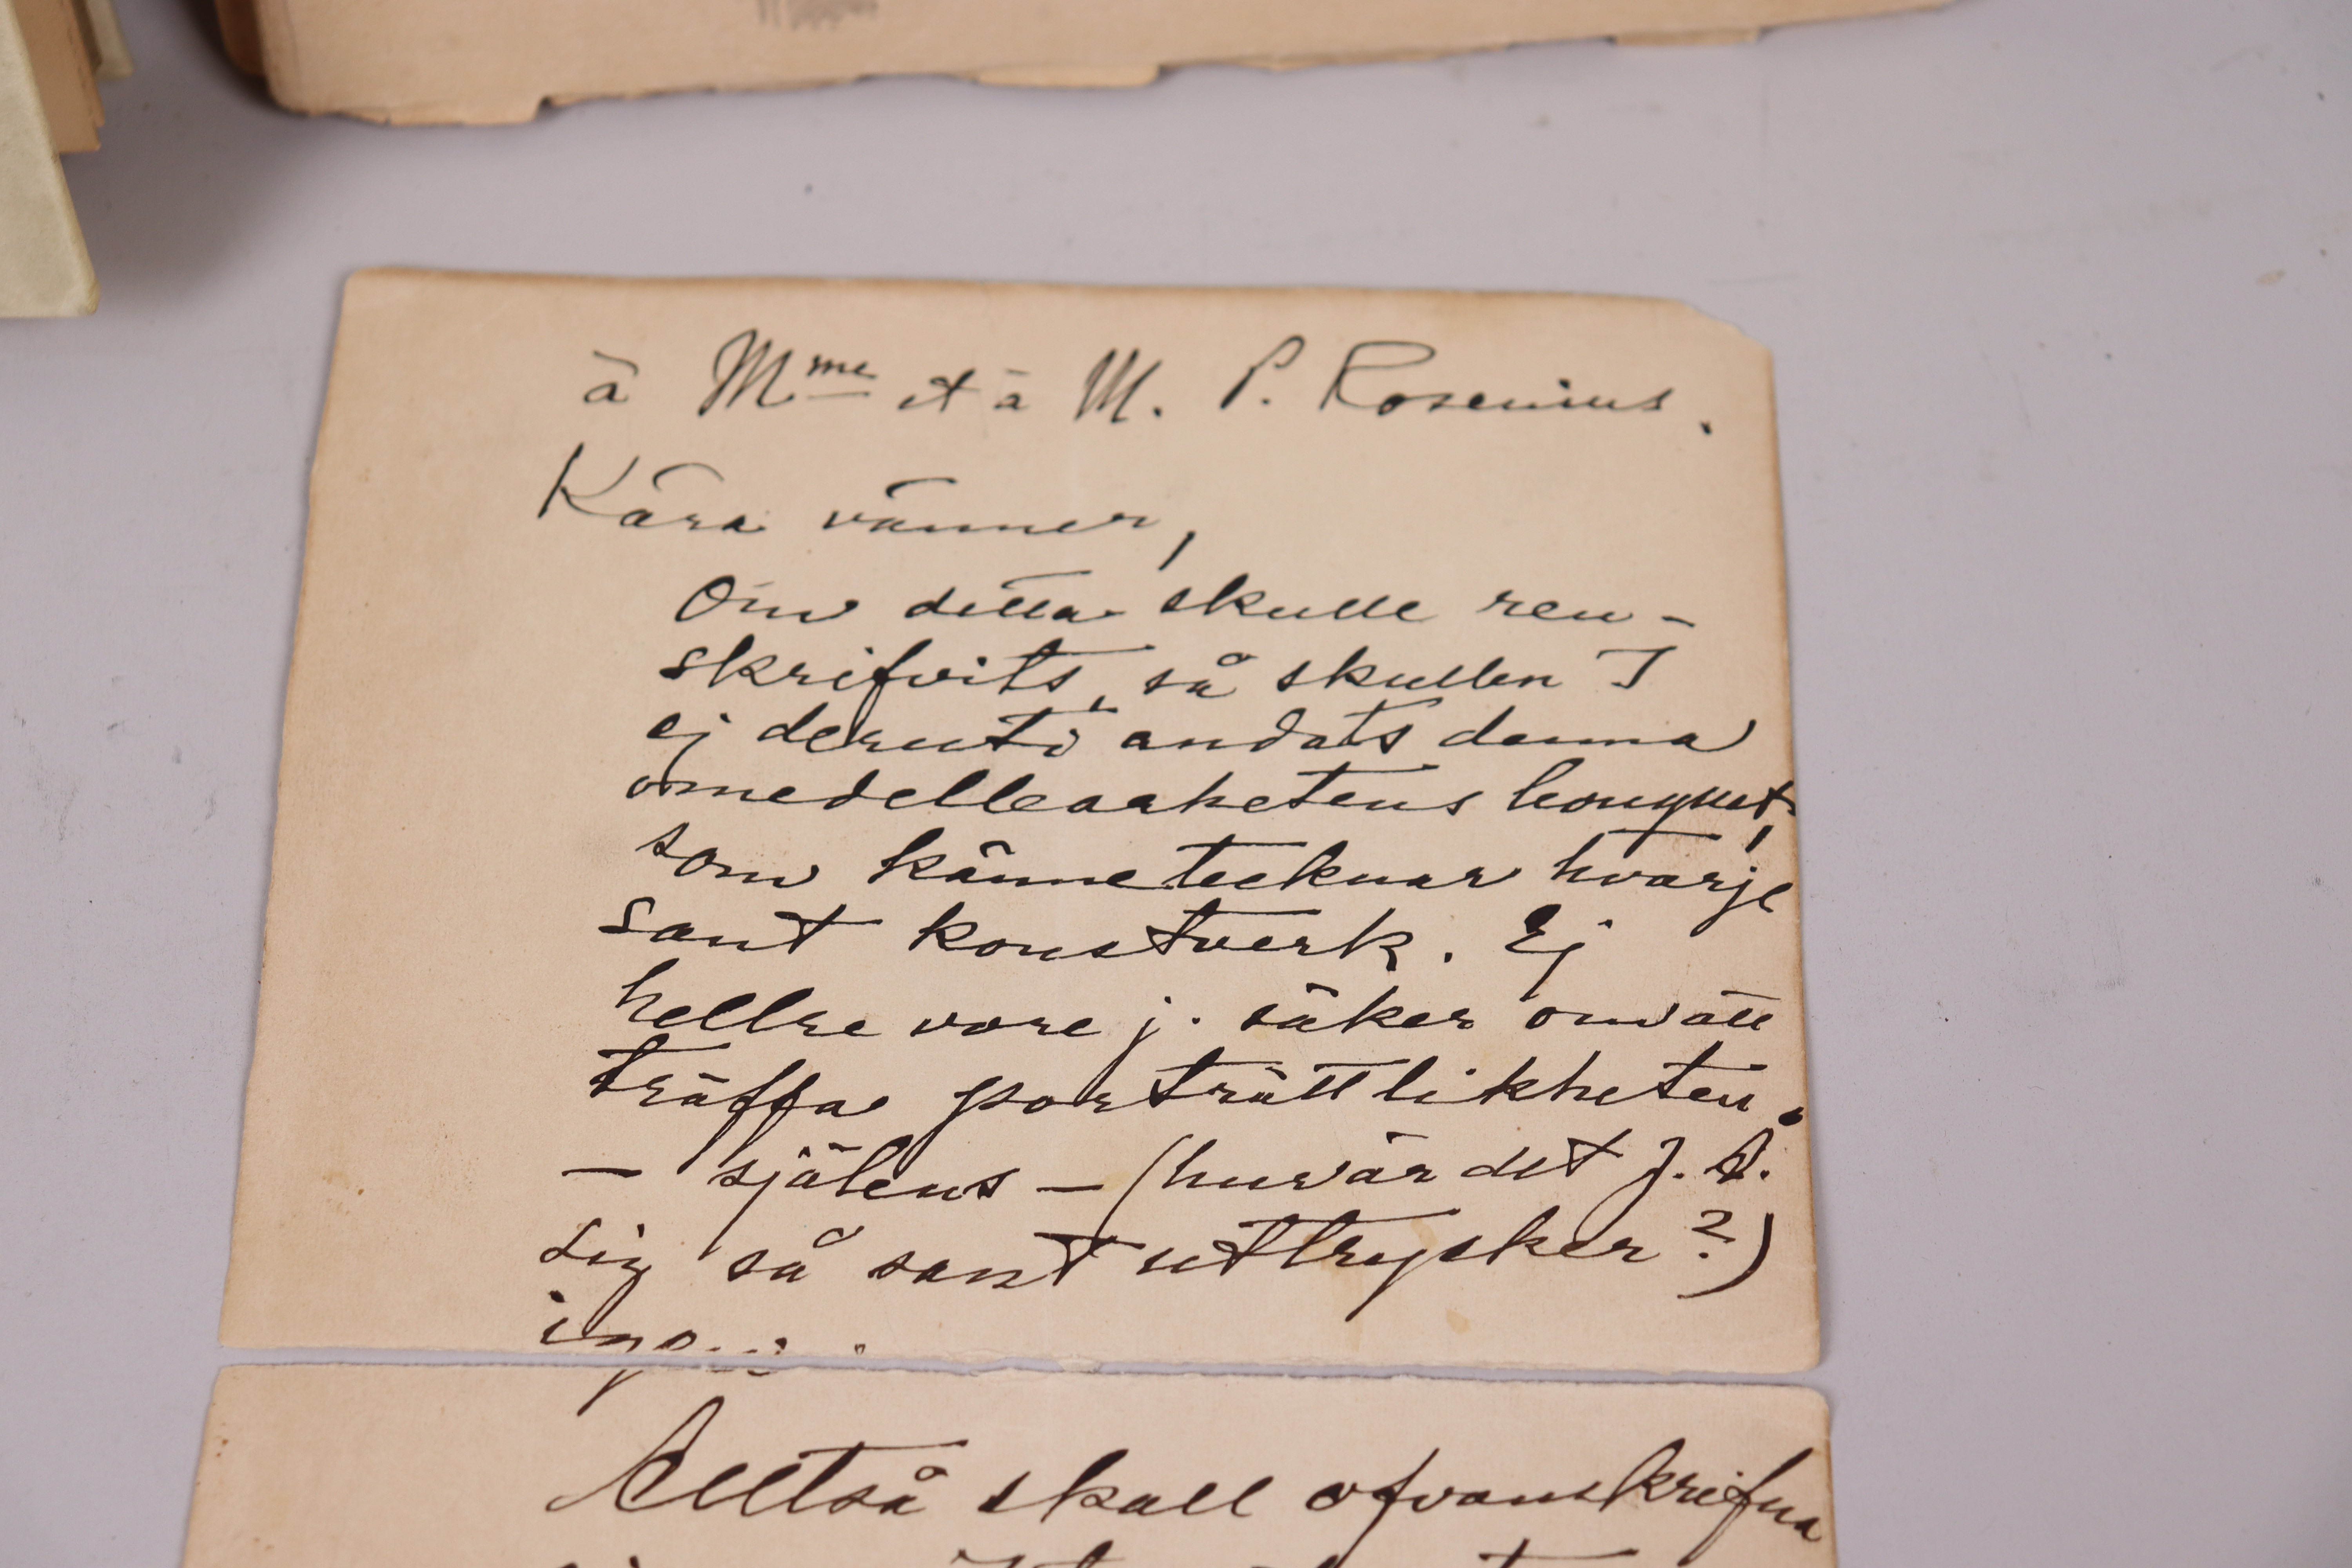 à Mme et à M. P. Rosenius.
Kära vänner,
Om detta skulle ren-
skrifvits, så skullen I
ej deruti andats denna
omedelbarhetens bouquet,
som kännetecknar hvarje
sant konstverk. Ej
hellre vore j. säker om att
träffa porträttlikheten.
— själens — (hur är det J. A.
sig så sant uttrycker?)
Alltså skall ofvanskrifna